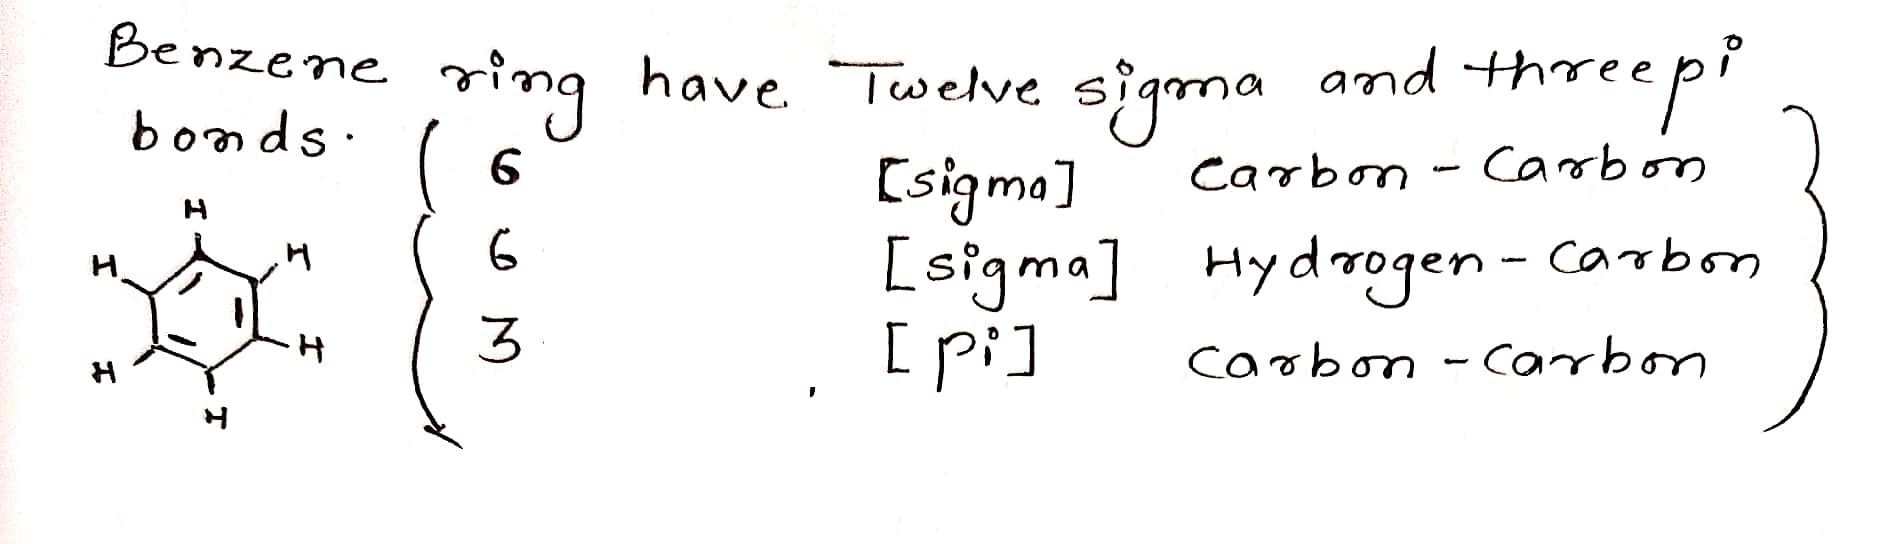 Benzene ring have Twelve sigma and three pi
bonds.
6 [sigma] Carbon - Carbon
6 [sigma] Hydrogen - Carbon
3 [pi] Carbon - Carbon
H
H H
H H
H